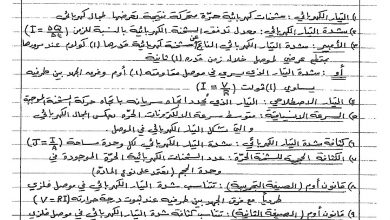 ١) التيار الكهربائي : شحنات كهربائية حرة متحركة نتيجة تعرضها لمجال كهربائي
٢) شدة التيار الكهربائي : معدل تدفق الشحنة الكهربائية بالنسبة للزمن (I = ΔQ/Δt)
٣) الأمبير : شدة التيار الكهربائي الناتج عن شحنة كهربائية قدرها (١) كولوم عند مرورها
بمقطع عرضي لموصل خلال زمن قدره (١) ثانية
أو : شدة التيار الذي يسري في موصل مقاومته ١ أوم وفرق الجهد بين طرفيه
يساوي (١) ڤولت (I = V/R)
٤) التيار الاصطلاحي : التيار الذي يحدد اتجاه سريانه باتجاه حركة الشحنة الموجبة
٥) السرعة الانسياقية : متوسط سرعة الالكترونات الحرة بعكس المجال الكهربائي
والتي تشكل التيار الكهربائي في الموصل
٦) كثافة شدة التيار الكهربائي : شدة التيار الكهربائي لكل وحدة مساحة (J = I/A)
٧) الكثافة الحجمية للشحنة الحرة : عدد الشحنات الكهربائية الحرة الموجودة في
وحدة الحجم (يعتمد على نوع المادة)
٨) قانون أوم (الصيغة التجريبية) : تتناسب شدة التيار الكهربائي في موصل فلزي
طردياً مع فرق الجهد بين طرفيه عند ثبوت درجة حرارته (V = RI)
٩) قانون أوم (الصيغة الثانية) : تتناسب كثافة شدة التيار الكهربائي في موصل فلزي